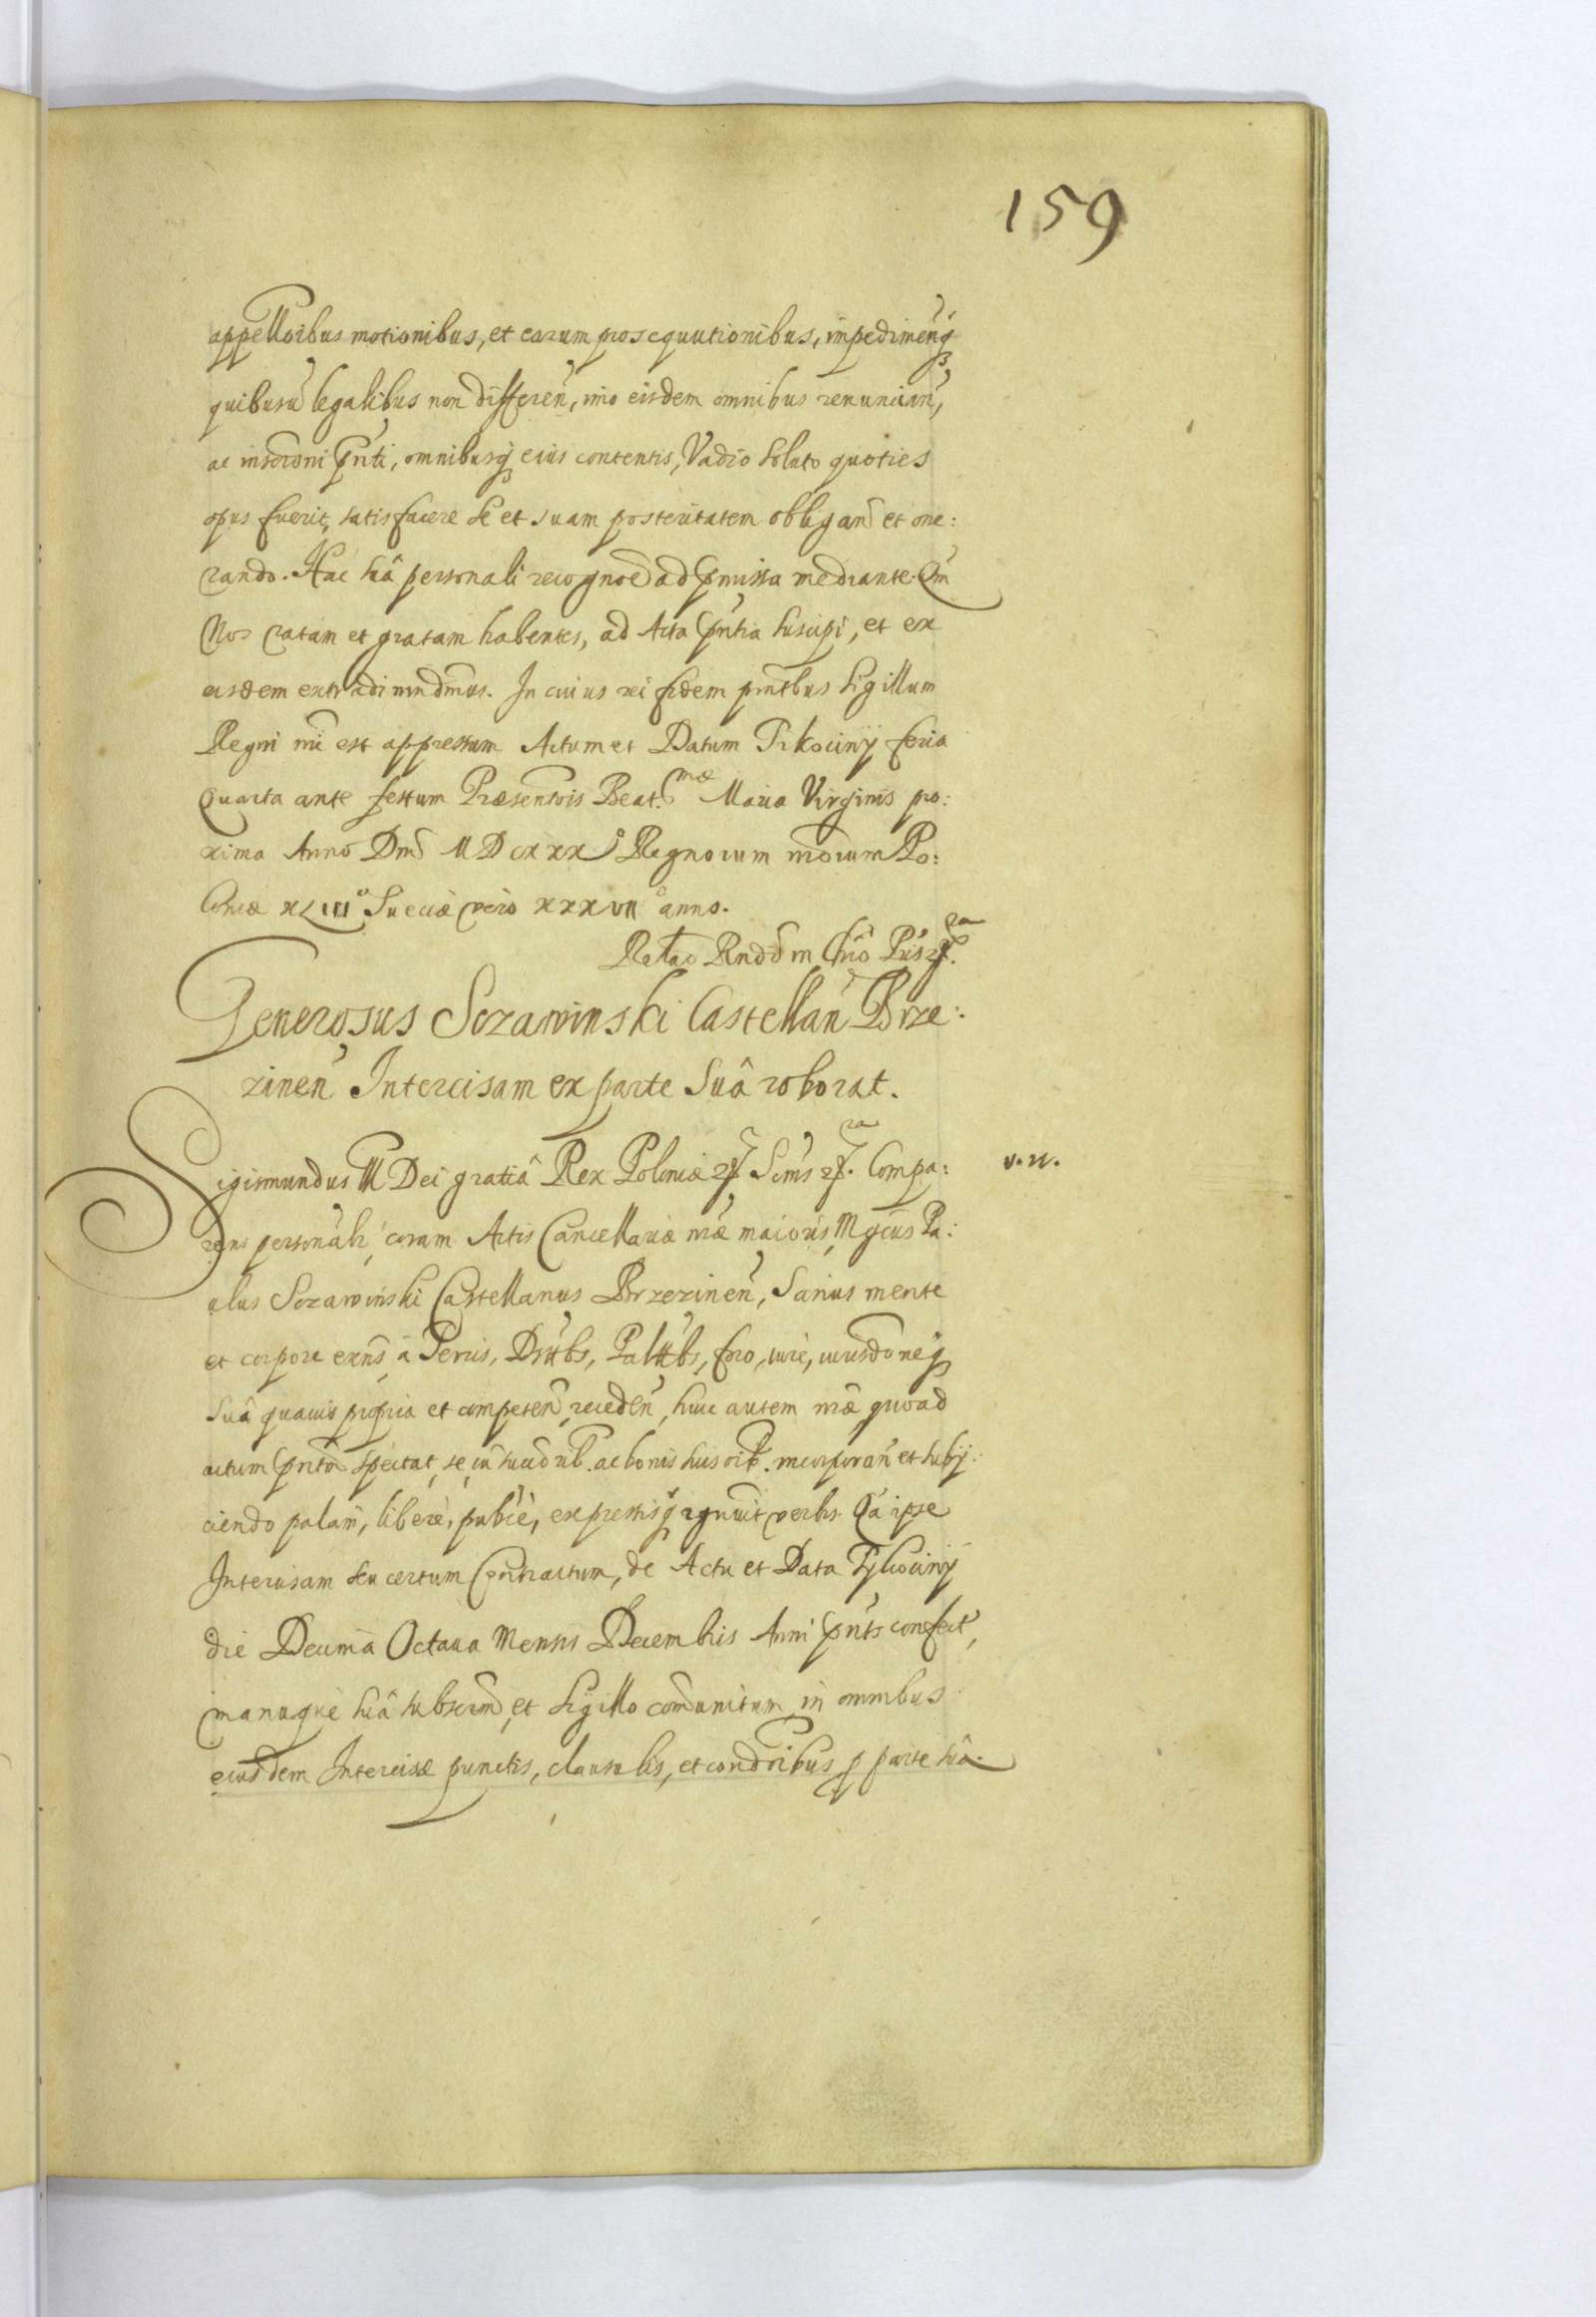 159
appelloibus motionibus, et earum prosequutionibus, impedimenq3
quibusũ legalibus non differeñ, imo eisdem omnibus renuncian̄,
ac inscrõni pñti, omnibusq eius contentis, Vadio soluto quoties
opus fuerit, satisfacere se et suam posteritatem obligañd et one:
rando. Hac suâ personali recognoe ad pmissa mediante. Qm̃
Nos ratam et gratam habentes, ad Acta pñtia suscipi, et ex
eisdem extradi mndmus. In cuius rei fidem pñtibus Sigillum
Regni nri est appressum Actum et Datum Tikociny feria
quarta ante festum Præsentois Beat.mæ Mariæ Virginis pro:
xima Anno Dnĩ MDCXXX Regnorum nrorum Po:
loniæ XLIIIº Sueciæ vero XXXVIIº anno.
Rñdd in Chro
Generosus Sczawinski Castellañ Brze:
zineñ Intercisam ex parte Suâ roborat.
Sigismundus III Dei gratiâ Rex Poloniæ Compa:
rens personalr̃, coram Actis Cancellariæ nræ maioris, Mgcus Pa:
ulus Sczawinski Castellanus Brzezineñ, Sanus mente
et corpore exñs, à Terris, Foro, iure, iurisdõneq
Suâ quauis ppria et competeñ recedeñ, huic autem nræ quoad
actum pñtem spectat, se cũ succõrib. ac bonis suis oib. incorporañ et subij:
ciendo palam, libere, publce, expressisq rgnuit verbis. Qa ipse
Intercisam seu certum Contractum, de Actu et Data Tykociny
die Decima Octaua Mensis Decembris Anni pñtis confect,
manuque suâ subscrm̃, et Sigillo comunitum, in omnibus
eiusdem Intercisæ punctis, clausulis, et condõnibus p parte suâ.
v. n.